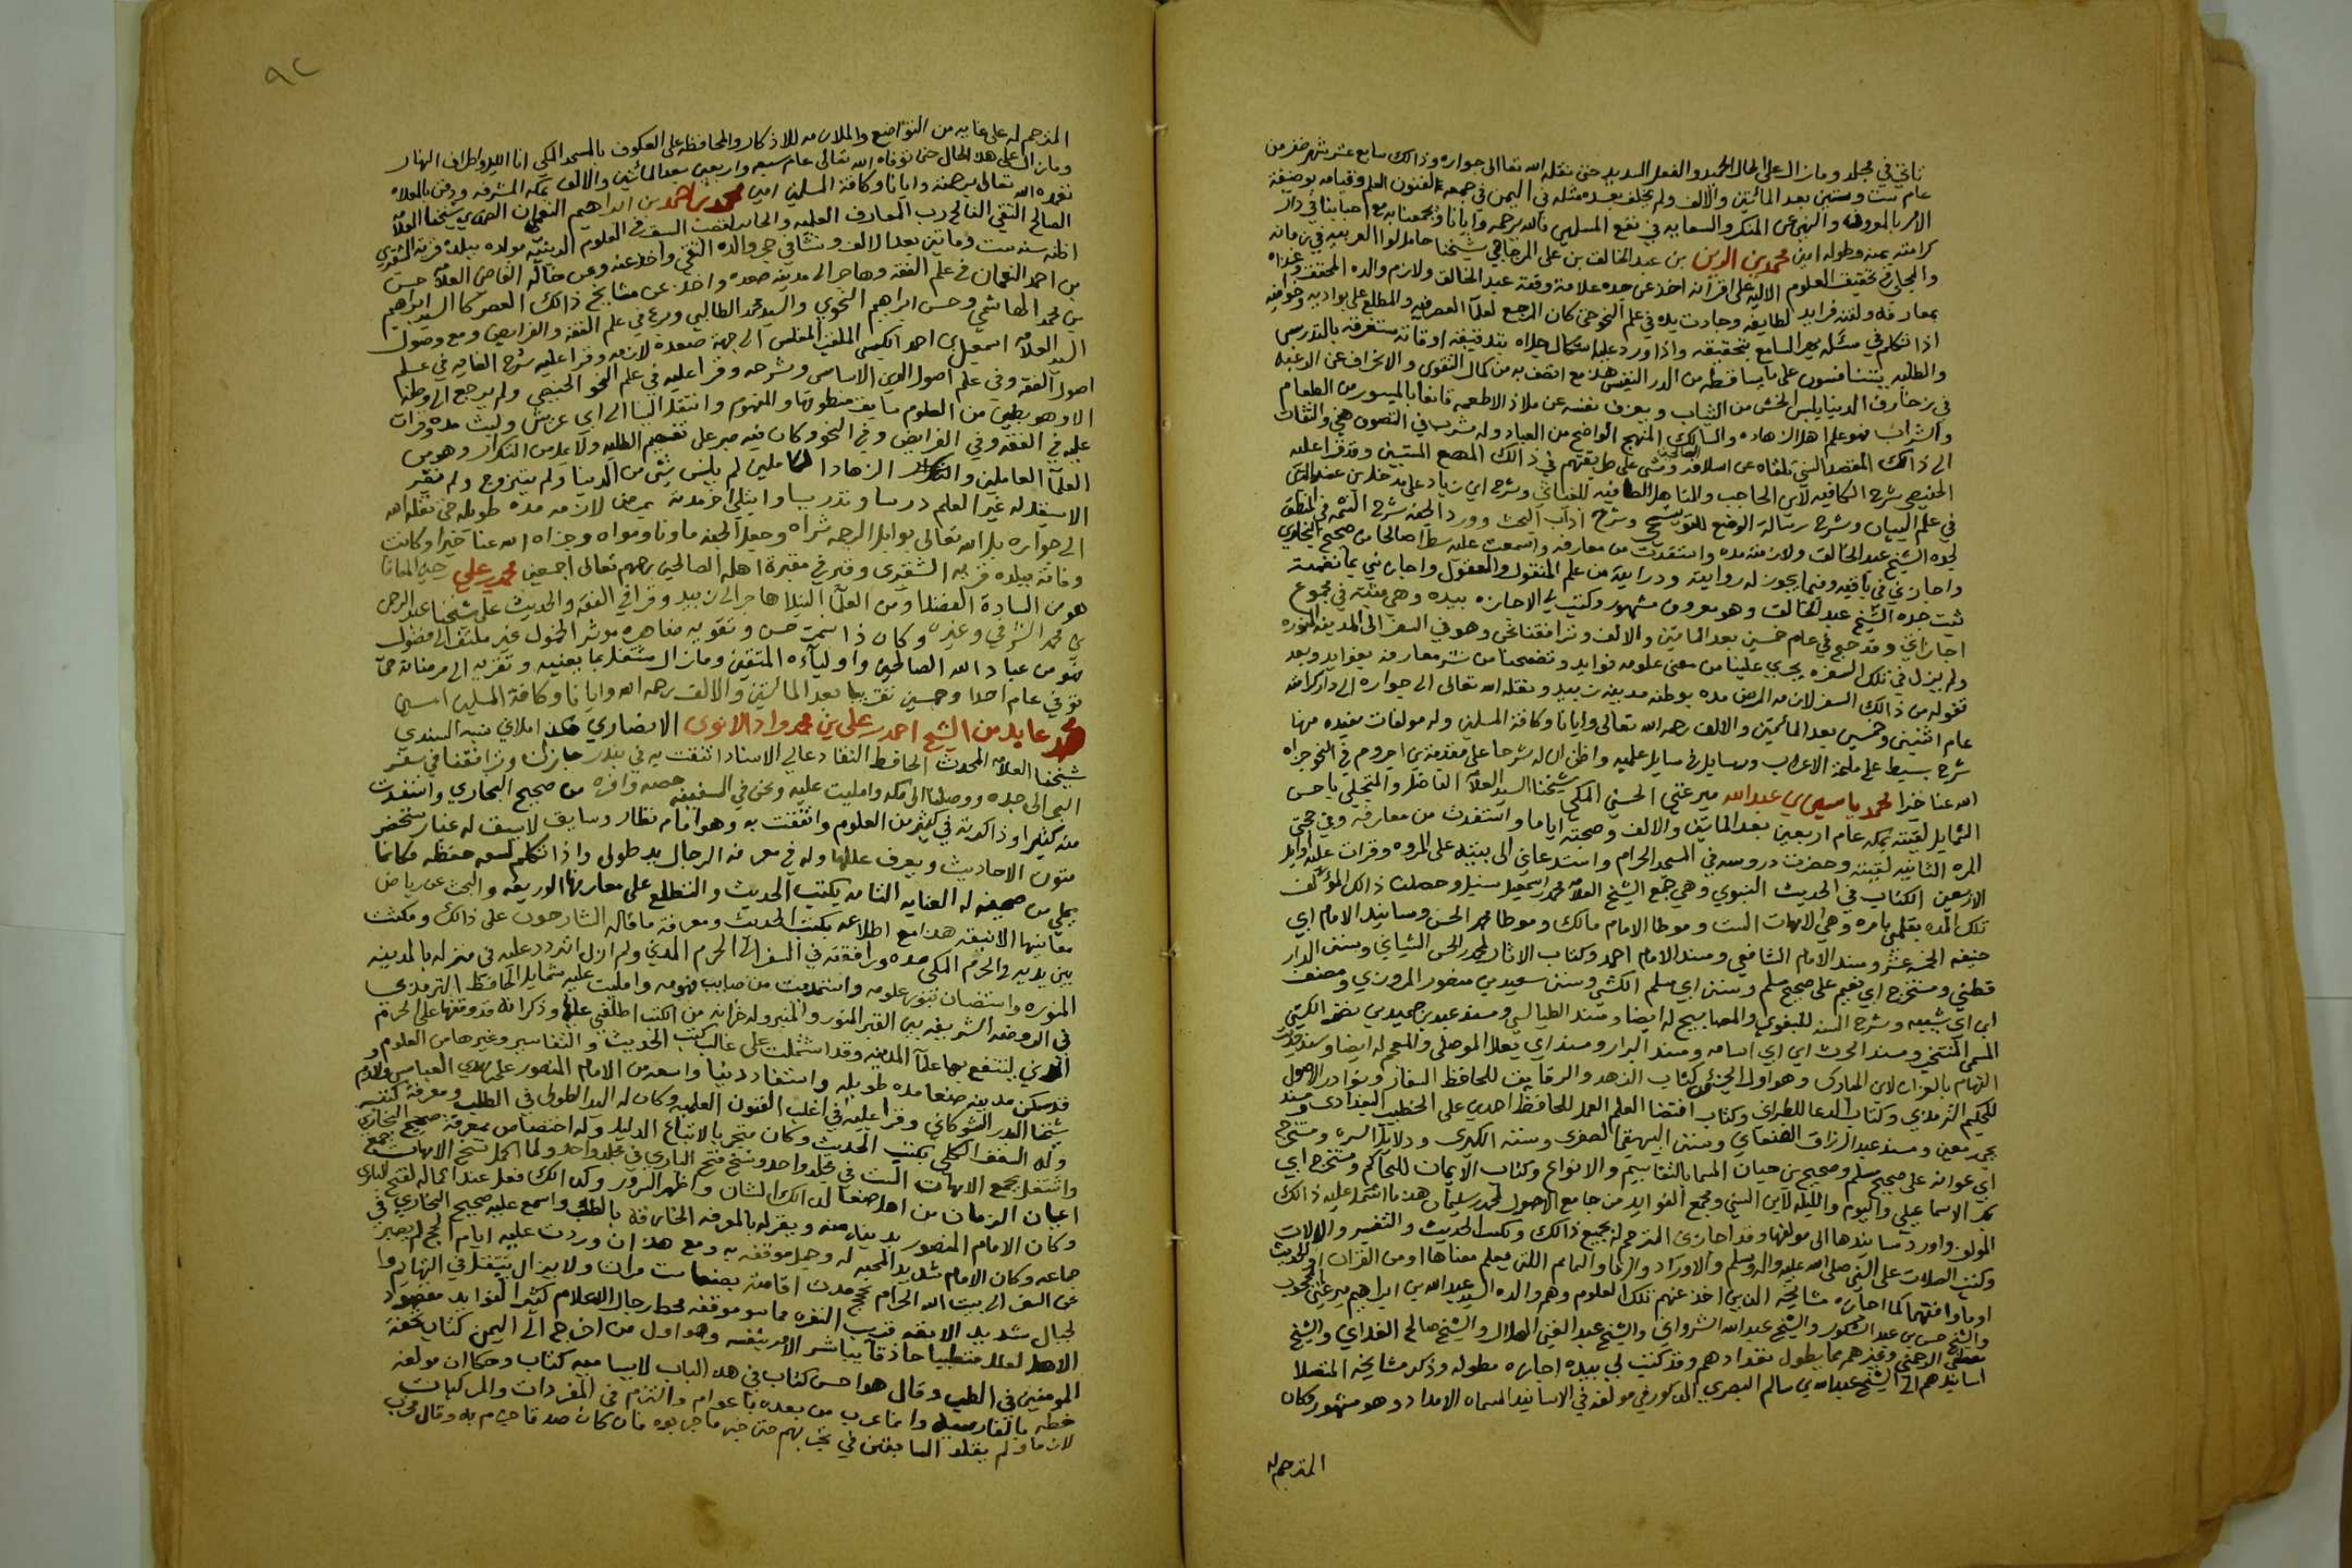 تاتي في مجلد وما زال على الحال الحميد والفعل السديد حتى نقله الله تعالى الى جواره وذالك سابع عشر شهر صفر من
عام ست وستين بعد المائتين والالف ولم يخلف بعده مثله في اليمن في جمعه لفنون العلم وقيامه بوضيفة
الامر بالمعروف والنهي عن المنكر والسعايه في نفع المسلمين فالله يرحمه وايانا ويجمعنا به مع احبابنا في دار
كرامته بمنه وطوله امين محمد بن الزين بن عبد الخالق بن علي المزجاجي شيخنا حامل لوا العربيه في زمانه
والمجلي في تحقيق العلوم الاليه على اقرانه اخذ عن جده علامة وقته عبد الخالق ولازم والده المحقق وغذاه
بمعارفه ولقنه فرايد لطايفه وجادت يده في علم النحو حتى كان المرجع لعلما العصر فيه والمطلع على بواديه وخوافيه
اذا تكلم في مسئله بهر السامع بتحقيقه واذا ورد عليه اشكال جلاه بتدقيقه اوقاته مستغرقه بالتدريس
والطلبه يتنافسون على ما يساقطه من الدر النفيس هذا مع اتصف به من كمال التقوى والانحراف عن الرغبه
في زخارف الدنيا يلبس الخشن من الثياب ويعزف نفسه عن ملاذ الاطعمه قانعا بالميسور من الطعام
والشراب فهو علم اهل الزهاده والسالك المنهج الواضح من العباد وله شرب في التصوف هني والتفات
الى ذالك المقصد السني تلقاه عن اسلافه الصالحين ومشى على طريقتهم في ذالك المهيع المستبين وقد قرا عليه
الخبيصي شرح الكافيه لابن الحاجب والمناهل الصافيه للغياثي وشرح
في علم البيان وشرح رسالة الوضع للقوشجي وشرح اداب البحث وورد الجنه شرح التتمه في المنطق
لجده الشيخ عبد الخالق ولازمته مده واستفدت من معارفه واسمعت عليه سطرا صالحا من صحيح البخاري
واجازني في باقيه وفيما يجوز له روايته ودرايته من علم المنقول والمعقول واجازني بما تضمنه
ثبت جده الشيخ عبد الخالق وهو معروف مشهور وكتب لي الاجازه بيده وهي مثبته في مجموع
اجازاتي وقد حج في عام خمسين بعد المائتين والالف وترافقنا نحن وهو في السفر الى المدينه المنوره
ولم يزل في تلك السفره يجري علينا من معين علومه فوايد وتضمخنا من نشر معارفه بعوايد وبعد
قفوله من ذالك السفر لازمه المرض مده بوطنه مدينة زبيد ونقله الله تعالى الى جواره الى دار كرامته
عام اثنين وخمسين بعد المائتين والالف رحمه الله تعالى وايانا وكافة المسلمين وله مولفات مفيده منها
شرح بسيط على ملحة الاعراب ورسايل في مسايل علميه واظن ان له شرحا على مقدمة بن اجروم في النحو جزاه
الله عنا خيرا محمد ياسين بن عبد الله ميرغني الحسيني المكي شيخنا السيد العلامه الفاضل والمتحلي باحسن
الشمايل لقيته بمكه عام اربعين بعد المائتين والالف وصحبته اياما واستفدت من معارفه وفي حجتي
المره الثانيه لقيته وحضرت دروسه في المسجد الحرام واستدعاني الى بيته على المروه وقرات عليه اوايل
الاربعين الكتاب في الحديث النبوي وهي جمع الشيخ العلامه محمد اسمعيل سنبل وحصلت ذالك المؤلف
تلك المده بقلمي بامره وهي الامهات الست وموطا الامام مالك وموطا محمد الحسن ومسانيد الامام ابي
حنيفه الخمسه عشر ومسند الامام الشافعي ومسند الامام احمد وكتاب الاثار لمحمد بن الحسن الشيباني وسنن الدار
قطني ومستخرج ابي نعيم على صحيح مسلم وسنن ابي مسلم الكشي وسنن سعيد بن منصور المروزي ومصنف
ابن ابي شيبه وشرح السنه للبغوي والمصابيح له ايضا ومسند الطيالسي ومسند عبد بن حميد بن نصر الكشي
المسمى المنتخب ومسند الحرث ابن ابي اسامه ومسند البزار ومسند ابي يعلا الموصلي والمعجم له ايضا
وهو اول الجزئي كتاب الزهد والرقايق للحافظ ونوادر الاصول
للحكيم الترمذي وكتاب الدعا للطبراني وكتاب اقتضا العلم العمل للحافظ احمد بن علي الخطيب البغدادي ومسند
يحيى بن معين ومسند عبد الرزاق الصنعاني وسنن البيهقي الصغرى وسننه الكبرى ودلايل النبوه ومستخرج
ابي عوانه على صحيح مسلم وصحيح بن حبان المسما بالتقاسيم والانواع وكتاب الايمان للحاكم ومستخرج ابي
بكر الاسماعيلي واليوم والليله لابن السني وجمع الفوايد من جامع الاصول لمحمد بن سليمان هذا ما اشتمل عليه ذالك
المولف واورد مسانيدها الى مولفيها وقد اجازني المترجم له بجميع ذالك وبكتب الحديث والتفسير والالات
وكتب الصلاة على النبي صلى الله عليه واله وسلم والاوراد والرقا والتمائم اللتي يعلم معناها او من القران او الحديث
او ما وافقهما كما اجازه مشايخه الذين اخذ عنهم تلك العلوم وهم والده السيد عبد الله بن ابراهيم ميرغني المحجوب
والشيخ حسن بن عبد الشكور والشيخ عبد الله الشرواني والشيخ عبد الغني الهلال والشيخ صالح الفلاني والشيخ
مصطفى الرحمتي وغيرهم ممن يطول تعدادهم وقد كتب لي بيده اجازه مطوله وذكر مشايخه المتصلا
اسانيدهم الى الشيخ عبد الله بن سالم البصري المذكور في مولفه في الاسانيد المسماه الامداد وهو مشهور وكان
المترجم له
٩٢
المترجم له على غايه من التواضع والملازمه للاذكار والمحافظه على العكوف بالمسجد المكي انا الليل واطراف النهار
وما زال على هذا الحال حتى توفاه الله تعالى عام سبعه واربعين بعد المائتين والالف بمكه المشرفه ودفن بالمعلاه
تغمده الله تعالى برحمته وايانا وكافة المسلمين امين محمد بن احمد بن ابراهيم النعمان الضمدي شيخنا العلامه
الصالح التقي الفالح رب المعارف العلميه والحايز لقصب السبق في العلوم الدينيه مولده ببلده قرية الشقيري
اظنه سنة ست ومائتين بعد الالف ونشا في حجر والده التقي واخذ عنه وعن خاله القاضي العلامه حسن
بن احمد النعمان في علم الفقه وهاجر الى مدينة صعده واخذ عن مشايخ ذالك العصر كالسيد ابراهيم
بن محمد الهاشمي وحسن ابراهيم النحوي والسيد محمد الطالبي وبرع في علم الفقه والفرايض ومع وصول
السيد العلامه اسمعيل بن احمد الكبسي الملقب المغلس الى جهة صعده لازمه وقرا عليه شرح الغايه في علم
اصول الفقه وفي علم اصول الدين الاساس وشرحه وقرا عليه في علم النحو الخبيصي ولم يرجع الى وطنه
الا وهو بطين من العلوم مايقه منطوقها والمفهوم وانتقل الينا الى ابي عريش ولبث مده وقرات
عليه في الفقه وفي الفرايض وفي النحو وكان فيه صبر على تفهيم الطلبه ولا يمل من التكرار وهو من
العلما العاملين والزهاد الكاملين لم يلبس بشي من الدنيا ولم يتزوج ولم
له غير العلم درسا وتدريسا وابتلي اخر مدته بمرض لازمه مده طويله حتى نقله الله
الى جواره بل الله تعالى بوابل الرحمه ثراه وجعل الجنه ماونا ومواه وجزاه الله عنا خيرا وكانت
وفاته ببلده قرية الشقيري وقبر في مقبرة اهله الصالحين رحمهم تعالى اجمعين محمد بن علي
هو من السادة الفضلا ومن العلما النبلا هاجر الى زبيد وقرا في الفقه والحديث على شيخنا عبد الرحمن
بن محمد الشرفي وغيره وكان ذا سمت حسن وتقوى به مظاهره موثر الخمول غير ملتفت الى فضول
فهو من عباد الله الصالحين واولياءه المتقين وما زال مشتغل بما يعنيه وتقربه الى مرضاته حتى
توفي عام احدا وخمسين تقريبا بعد المائتين والالف رحمه الله وايانا وكافة المسلمين امين
محمد عابد بن الشيخ احمد بن علي بن محمد مراد الايوبي الانصاري هكذا املاني نسبه السندي
شيخنا العلامه المحدث الحافظ النقاد عالي الاسناد اتفقت به في بندر جازان وترافقنا في سفر
البحر الى جده ووصلنا الى مكه وامليت عليه ونحن في السفينه حصه وافره من صحيح البخاري واستفدت
منه كثيرا وذاكرته في كثير من العلوم وانتفعت به وهو امام نظار وسابق لا يشق له غبار يستحضر
متون الاحاديث ويعرف عللها وله في معرفة الرجال يد طولى واذا تكلم لسعة حفظه فكانما
يملي من صحيفه له العنايه التامه بكتب الحديث والتطلع على معارفها الوريقه والبحث عن رياض
معانيها الانيقه هذا مع اطلاعه بكتب الحديث ومعرفة ما قاله الشارحون على ذالك ومكثت
بين يديه في الحرم المكي مده ورافقته في السفر الى الحرم المدني ولم ازل اتردد عليه في منزله بالمدينه
المنوره واستضات بنور علومه واستمديت من صايب فهومه وامليت عليه شمايل الحافظ الترمذي
في الروضه الشريفه بين القبر المنور والمنبر وله خزانه من الكتب اطلعني عليها وذكر انه قد وقفها على الحرم
المدني لينتفع بها علما المدينه وقد اشتملت على غالب كتب الحديث والتفاسير وغيرها من العلوم و
قد سكن مدينة صنعا مده طويله واستفاد دنيا واسعه من الامام المنصور علي بن المهدي العباسي ولازم
شيخنا البدر الشوكاني وقرا عليه في اغلب الفنون العلميه وكان له اليد الطولى في الطب ومعرفة كتبه
وله الشغف الكلي بكتب الحديث وكان متحر بالاتباع الدليل وله اختصاص بمعرفة صحيح البخاري
واشتغل بجمع الامهات الست في مجلد واحد ونسخ فتح الباري في مجلد واحد ولما اكمل نسخ الامهات جمع
اعيان الزمان من اهل صنعا لذالك الشان واظهر السرور وكذالك فعل عند اكماله لفتح الباري
وكان الامام المنصور يدنيه منه ويقر له بالمعرفه الخارقه بالطب واسمع عليه صحيح البخاري في
جماعه وكان الامام شديد المحبه له وجل موقفه به ومع هذا ان وردت عليه ايام الحج لم يصبر
عن السفر الى بيت الله الحرام بحج مدة اقامته بصنعا ست مرات ولا يزال يتنقل في التهايم وا
لجبال شديد الانفه قريب النفره مما سو موقفه محط رجال الاعلام كثير الفوايد مقصود
لعلل متطببا حاذقا يباشر الامر بنفسه وهو اول من اخرج الى اليمن كتاب تحفة
المومنين في الطب وقال هو احسن كتاب في هذا الباب لاسيما فيه كتاب وحكا ان مولفه
خطه بالفارسيه وانما عرب من بعده باعوام والتزم في المفردات والمركبات
لازما ولم يقلد السابقين في تجربهم حتى خبر ما جربوه فان كان صدقا جزم به وقال مجرب